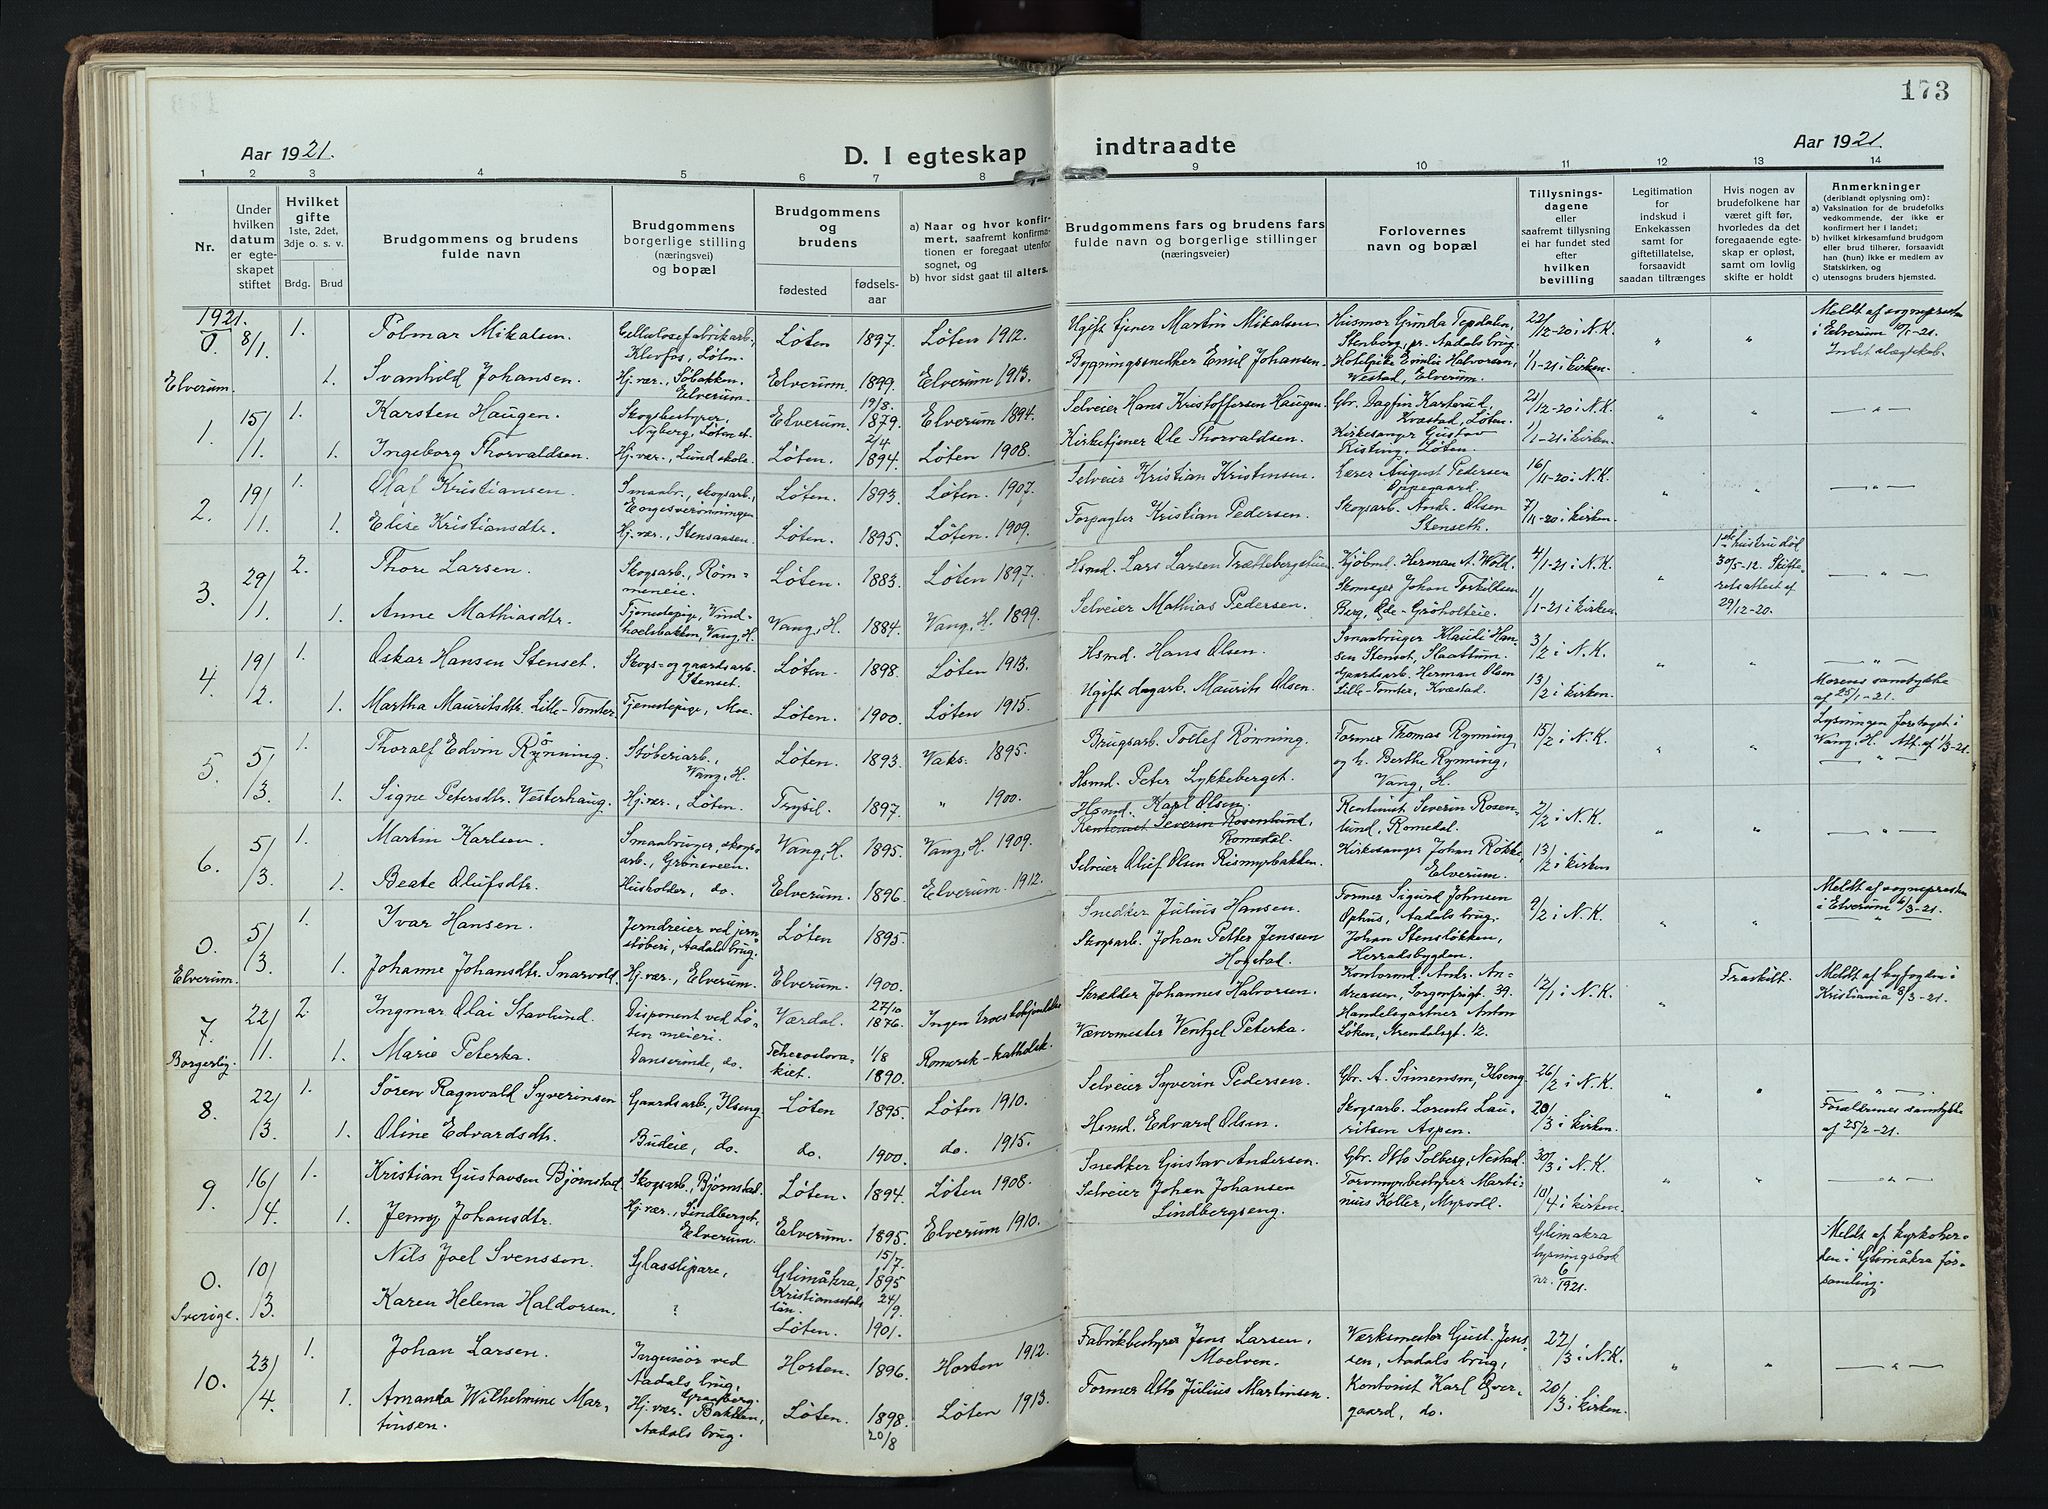 173
Aar 1921.
D. I egteskap indtraadte
Aar 1921
1 2 3 4 5 6 7 8 9 10 11 12 13 14
Nr.
Under hvilken datum er egteskapet stiftet
Hvilket gifte
1ste, 2det, 3dje o. s. v.
Brdg. Brud
Brudgommens og brudens fulde navn
Brudgommens borgerlige stilling (næringsvei) og bopæl
Brudgommens og brudens
fødested
fødselsaar
a) Naar og hvor konfirmert, saafremt konfirmationen er foregaat utenfor sognet, og
b) hvor sidst gaat til alters.
Brudgommens fars og brudens fars fulde navn og borgerlige stillinger (næringsveier)
Forlovernes navn og bopæl
Tillysningsdagene eller saafremt tillysning ei har fundet sted efter hvilken bevilling
Legitimation for indskud i Enkekassen samt for giftetillatelse, forsaavidt saadan tiltrænges
Hvis nogen av brudefolkene har været gift før, hvorledes da det foregaaende egteskap er opløst, samt om lovlig skifte er holdt
Anmerkninger (deriblandt oplysning om):
a) Vaksination for de brudefolks vedkommende, der ikke er konfirmert her i landet;
b) hvilket kirkesamfund brudgom eller brud tilhører, forsaavidt han (hun) ikke er medlem av Statskirken, og
c) utensogns bruders hjemsted.
1921.
0. 8/1 1. Polmar Mikalsen. Cellulosefabrikarb., Klevfos, Løten. Løten 1897. Løten 1912. Ugift tjener Martin Mikalsen. Husmor Gunda Tepdalen, Stenborg, pr. Aadals brug. 22/12-20 i N.K. " " Meldt af sognepresten i Elverum 10/1-21.
Elverum. 1. Svanhild Johansen. Hj. vær., Søbakken, Elverum. Elverum. 1899. Elverum 1913. Bygningssnedker Emil Johansen. Hotelpike Emilie Halvorsen, Westad, Elverum. 1/1-21 i kirken. Indet slægtskab.
1. 15/1 1. Karsten Haugen. Skogsbestyrer, Nyberg, Løten st. Elverum. 19/8 1879. Elverum 1894. Selveier Hans Kristoffersen Haugen. Gbr. Dagfin Karterud, Kvæstad, Løten. 21/12-20 i N.K. " "
1. Ingeborg Thorvaldsen. Hj. vær., Lund skole. Løten. 2/4 1894. Løten 1908. Kirketjener Ole Thorvaldsen. Kirkesanger Gustav Risting, Løten. 1/1-21 i kirken.
2. 19/1 1. Olaf Kristiansen. Smaabr., skogsarb., Løten. 1893. Løten. 1907. Selveier Kristian Kristensen. Lærer August Pedersen Oppegaard. 16/11-20 i N.K. " "
1. Elise Kristiansdtr. Hj. vær., Stensaasen. Løten. 1895. Løten. 1909. Forpagter Kristian Pedersen. Skogsarb. Andr. Olsen Stenseth. 7/11-20 i kirken.
3. 29/1 2. Thore Larsen. Skogsarb., Rømmeneie. Løten. 1883. Løten 1897. Hsmd. Lars Larsen Trættebergstuen. Kjøbmd. Herman A. Wold. 4/1-21 i N.K. " 1ste hustru død 30/5-12. Skifteretsattest af 29/12-20.
1. Anne Mathiasdtr. Tjenestepige, Vindhoelsbakken, Vang, H. Vang, H. 1884. Vang, H. 1899. Selveier Mathias Pedersen. Skomager Johan Torkildsen Berg, Øde-Grøholteie. 1/1-21 i kirken.
4. 19/2 1. Oskar Hansen Stenset. Skogs- og gaardsarb. Stenset. Løten. 1898. Løten 1913. Hsmd. Hans Olsen. Smaabruger Klauti Hansen Stenset, Slaattum. 3/2 i N.K. " "
1. Martha Mauritsdtr. Lille-Tomter. Tjenestepige, Moe. Løten. 1900. Løten 1915. Ugift dagarb. Maurits Olsen. Gaardsarb. Herman Olsen Lille-Tomter, Kvæstad. 13/2 i kirken. Morens samtykke af 25/1-21.
5. 5/3 1. Thoralf Edvin Rynning. Støberiarb., Vang, H. Løten. 1893. Vaks. 1895. Brugsarb. Tollef Rønning. Former Thomas Rynning og h. Berthe Rynning, Vang, H. 15/2 i N.K. " " Lysningen foretaget i Vang, H. Att. af 1/3-21.
1. Signe Petersdtr. Vesterhaug. Hj. vær., Løten. Trysil. 1897. " 1900. Hsmd. Peter Lykkeberget.
6. 5/3 1. Martin Karlsen. Smaabruger, skogsarb., Grønsveen. Vang, H. 1895. Vang, H. 1909. Hsmd. Karl Olsen. Rentenist Severin Rosenlund, Romedal. Rentenist Severin Rosenlund, Romedal. 2/2 i N.K. " "
1. Beate Olufsdtr. Husholder, do. Elverum. 1896. Elverum. 1912. Selveier Oluf Olsen Rismyrbakken. Kirkesanger Johan Røkke, Elverum. 13/2 i kirken
0. 5/3 1. Ivar Hansen. Jerndreier ved jernstøberi, Aadals brug. Løten 1895. Snedker Julius Hansen. Former Sigurd Johnsen Ophus, Aadals brug. 9/2 i N.K. " " Meldt af sognepresten i Elverum 5/3-21.
Elverum. 1. Johanne Johansdtr. Snarvold. Hj. vær., Elverum. Elverum. 1900. Skogsarb. Johan Petter Jenssen Hogstad. Johan Stensløkken, Herradsbygden.
7. 22/1 2. Ingmar Olai Stavlund. Disponent ved Løten meieri. Værdal. 27/10 1876. Ingen troesbekjendelse Skrædder Johannes Halvorsen. Kontormd. Andr. Andreassen, Sorgenfrigt. 39. 12/1 i N.K. " Fraskilt. Meldt af byfogden i Kristiania 8/3-21.
Borgerlig. 1. Marie Peterka. Danserinde, do. Tcheroslovakiet. 1/8 1890. Romersk-katholsk. Værermester Ventzel Peterka. Handelsgartner Anton Løken, Arendalsgt. 12.
8. 22/3 1. Søren Ragnvald Syverinsen. Gaardsarb., Ilseng. Løten 1895. Løten 1910. Selveier Syverin Pedersen. Gbr. A. Simensen, Ilseng. 26/2 i N.K. " "
1. Oline Edvardsdtr. Budeie, do. do. 1900. do. 1915. Hsmd. Edvard Olsen. Skogsarb. Lorents Lauritsen Aspen. 20/3 i kirken. Forældrenes samtykke af 25/2-21.
9. 16/4 1. Kristian Gustavsen Bjørnstad. Skogsarb., Bjørnstad. Løten. 1894. Løten 1908. Snedker Gustav Andersen. Gbr. Otto Solberg, Nestad. 30/3 i N.K. " "
1. Jenny Johansdtr. Hj. vær., Lindberget, Elverum. Elverum. 1895. Elverum 1910. Selveier Johan Johansen Lindbergseng. Torvmyrbestyrer Martinius Koller, Myrvold. 10/4 i kirken.
0. 10/3 Nils Joel Svensson. Glasslipare, Glimåkra, Kristianstads län. 15/7 1895 Glimakra lysningsbok nr. 6 1921. Meldt af kyrkoherden i Glimåkra församling.
Sverige. Karen Helena Haldorsen. ? Løten. 24/9 1901.
10. 23/4 1. Johan Larsen. Ingeniør ved Aadals brug. Horten. 1896. Horten 1912. Fabrikbestyrer Jens Larsen, Moelven. Værksmester Gust. Jensen, Aadals brug, 27/3 i N.K. " "
1. Amanda Wilhelmine Martinsen. Hj. vær. Bakken, Aadals brug. Løten. 1898. 20/8 Løten 1913. Former Otto Julius Martinsen. Kontorist Karl Overgaard, do. 20/3 i kirken.